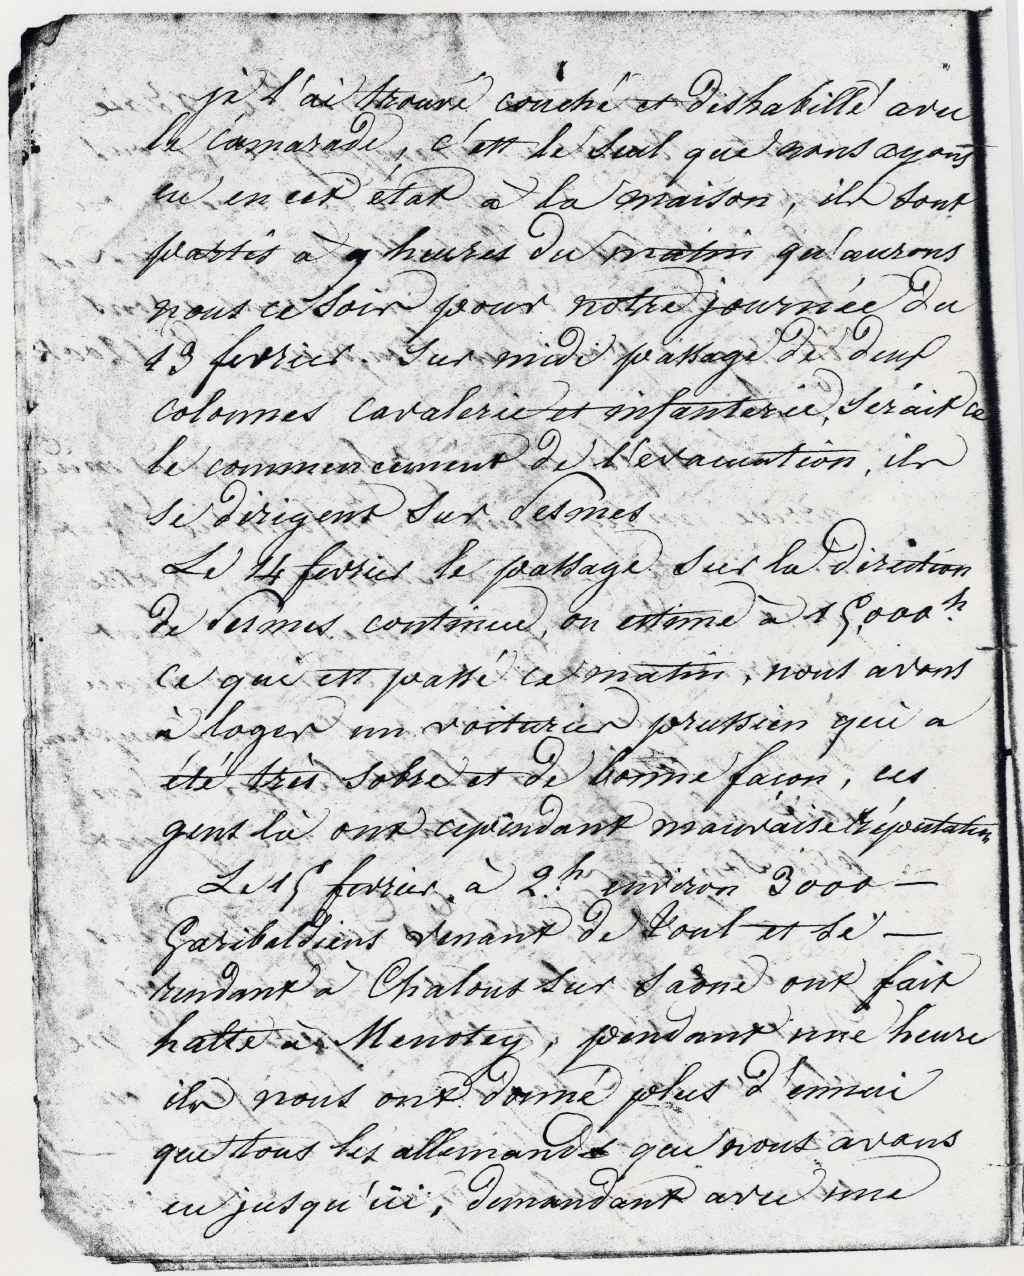 je l'ai trouvé couché et déshabillé avec
le camarade, c'est le seul que nous ayons
eu en cet état à la maison, ils sont
partis à 9 heures du matin qu'aurons
nous ce soir pour notre journée du
13 fevrier Sur midi passage de deux
colonnes cavalerie et infanterie, serait ce
le commencement de l'evacuation, ils
se dirigent sur Pesmes
Le 14 fevrier le passage sur la direction
de Pesmes continue, on estime à 15,000 h
ce qui est passé ce matin, nous avons
à loger un voiturier prussien qui a
été très sobre et de bonne façon, ces
gens là ont cependant mauvaise réputation
Le 15 fevrier à 2 h environ 3000 —
Garibaldiens venant de et se —
rendant à Chalons sur Saône ont fait
halte à Menotey, pendant une heure
ils nous ont donné plus d'ennui
que tous les allemands que nous avons
eu jusqu'ici, demandant avec une